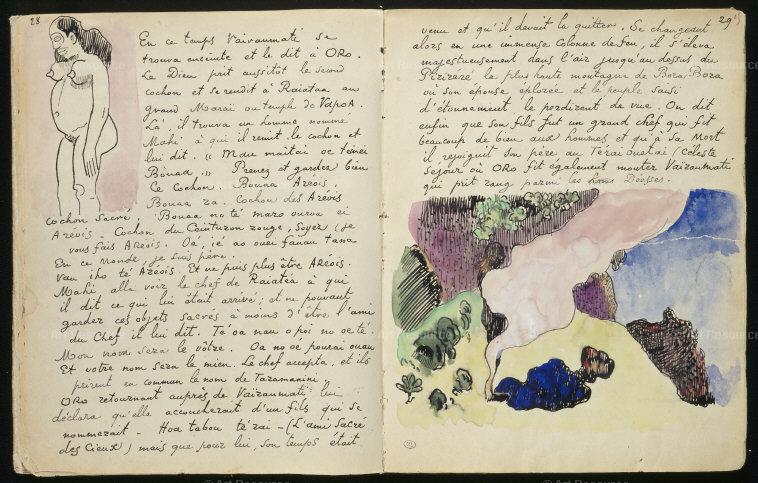 28
En ce temps Vaïraumati se
trouva enceinte et le dit à ORO.
Le Dieu prit aussitôt le second
cochon et se rendit à Raïatéa au
grand Maraï ou temple de VapoA.
Là, il trouva un homme nommé
Mahi à qui il remit le cochon et
lui dit. " Mau maitai oe teinei
Bouaa " Prenez et gardez bien
Ce Cochon. Bouaa Areoïs,
Bouaa ra. Cochon des Aréoïs
Cochon Sacré, Bouaa no té maro ouroa ei
Aréoïs - Cochon du Ceinturon rouge, Soyez (je
vous fais Aréoïs. Oa, ié ao ouei fanau tama
En ce Monde je suis père.
Vau iho té Aréoïs. Et ne puis plus être Aréoïs.
Mahi alla voir le chef de Raïatéa à qui
il dit ce qui lui était arrivé; et ne pouvant
garder ces objets sacrés à moins d'être l'ami
du Chef il lui dit. Té oa nau o poi no oe té.
Mon nom sera le vôtre. Oa no oé pourai ouau
Et votre nom sera le mien. Le chef accepta, et ils
prirent en commun le nom de Taramanini
ORo retournant auprès de Vaïraumati lui
déclara qu'elle accoucherait d'un fils qui se
nommerait - Hoa tabou té raï - (L'ami Sacré
des Cieux) mais que pour lui, son temps était
29
venu et qu'il devait la quitter. Se changeant
alors en une immense Colonne de feu, il s'éleva
majestueusement dans l'air jusqu'au dessus du
Pirireré la plus haute montagne de Bora Bora
où son épouse éplorée et le peuple saisi
d'étonnement le perdirent de vue. On dit
enfin que son fils fut un grand chef qui fit
beaucoup de bien aux hommes et qu'à sa Mort
il rejoignit son père au Téraï ouetaï / Céleste
Séjour où ORO fit également monter Vaïraumati
qui prit rang parmi les Déesses.